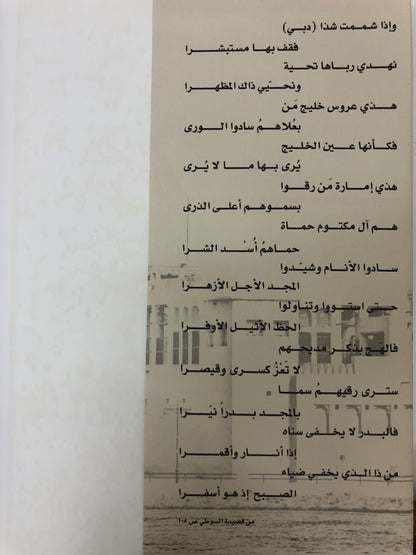 وإذا شممت شذا (دبي)
فقف بها مستبشرا
نهدي رباها تحية
ونحيّي ذاك المظهرا
هذي عروس خليج مَن
بعُلاهمُ سادوا الورى
فكأنها عين الخليج
يُرى بها ما لا يُرى
هذي إمارة مَن رقوا
بسموهم أعلى الذرى
هم آل مكتوم حماة
حماهمُ أُسْد الشرا
سادوا الأنام وشيّدوا
المجد الأجل الأزهرا
حتى استووا وتناولوا
الحظ الأثيل الأوفرا
فالهج بذكر مديحهم
لا تَعْزُ كسرى وقيصرا
سترى رقيهمُ سما
بالمجد بدراً نيّرا
فالبدر لا يخفى سناه
إذا أنار وأقمرا
من ذا الذي يخفي ضياء
الصبح إذ هو أسفرا
من قصيدة الوطن ص ١٠٨